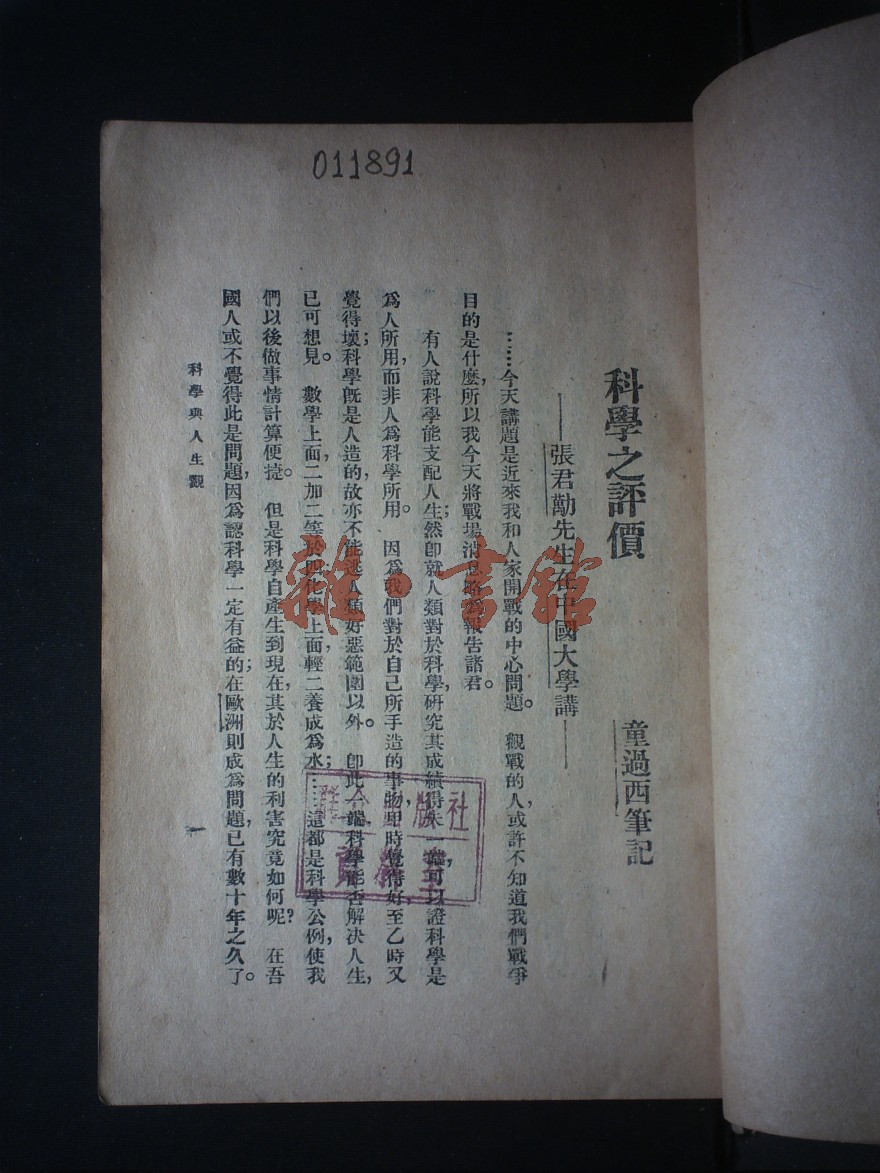 011891
科學之評價
童過西筆記
——張君勱先生在中國大學講——
……今天講題是近來我和人家開戰的中心問題。觀戰的人,或許不知道我們戰爭
目的是什麼,所以我今天將戰場消息略爲報告諸君。
有人說科學能支配人生;然卽就人類對於科學,研究其成績得失一端,可以證科學是
爲人所用,而非人爲科學所用。因爲我們對於自己所手造的事物,甲時覺得好,至乙時又
覺得壞;科學旣是人造的,故亦不能逃人類好惡範圍以外。卽此一端,科學能否解決人生,
已可想見。數學上面,二加二等於四;化學上面,輕二養成爲水;……這都是科學公例,使我
們以後做事情計算便捷。但是科學自產生到現在,其於人生的利害究竟如何呢?在吾
國人或不覺得此是問題,因爲認科學一定有益的;在歐洲則成爲問題,已有數十年之久了。
科學與人生觀
一
雜·書館
出版社
資料室